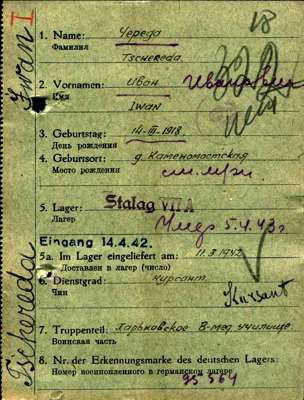 18
I
1. Name: Череда
Фамилия
Tschereda
2. Vornamen: Ивон Иванович
Имя
Iwan
3. Geburtstag: 14-III-1918
День рождения
4. Geburtsort: д. Каменомостская
Место рождения
5. Lager: Stalag VI A
Лагер
Умер 5.4.43г
Eingang 14.4.42.
5a. Im Lager eingeliefert am: 11.3.1942
Доставлен в лагер (число)
6. Dienstgrad: курсант.
Чин
Kursant
7. Truppenteil: Харьковское В-мед училище
Воинская часть
8. Nr. der Erkennungsmarke des deutschen Lagers:
Номер военнопленного в германском лагере
95 564
Iwan
Tschereda